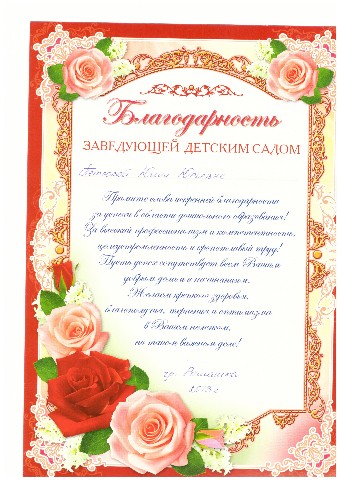 Благодарность
ЗАВЕДУЮЩЕЙ ДЕТСКИМ САДОМ
Примите слова искренней благодарности
за успехи в области дошкольного образования!
За высокий профессионализм и компетентность,
целеустремленность и кропотливый труд!
Пусть успех сопутствует всем Вашим
добрым делам и начинаниям.
Желаем крепкого здоровья,
благополучия, терпения и оптимизма
в Вашем нелегком,
но таком важном деле!
гр. Ромашка